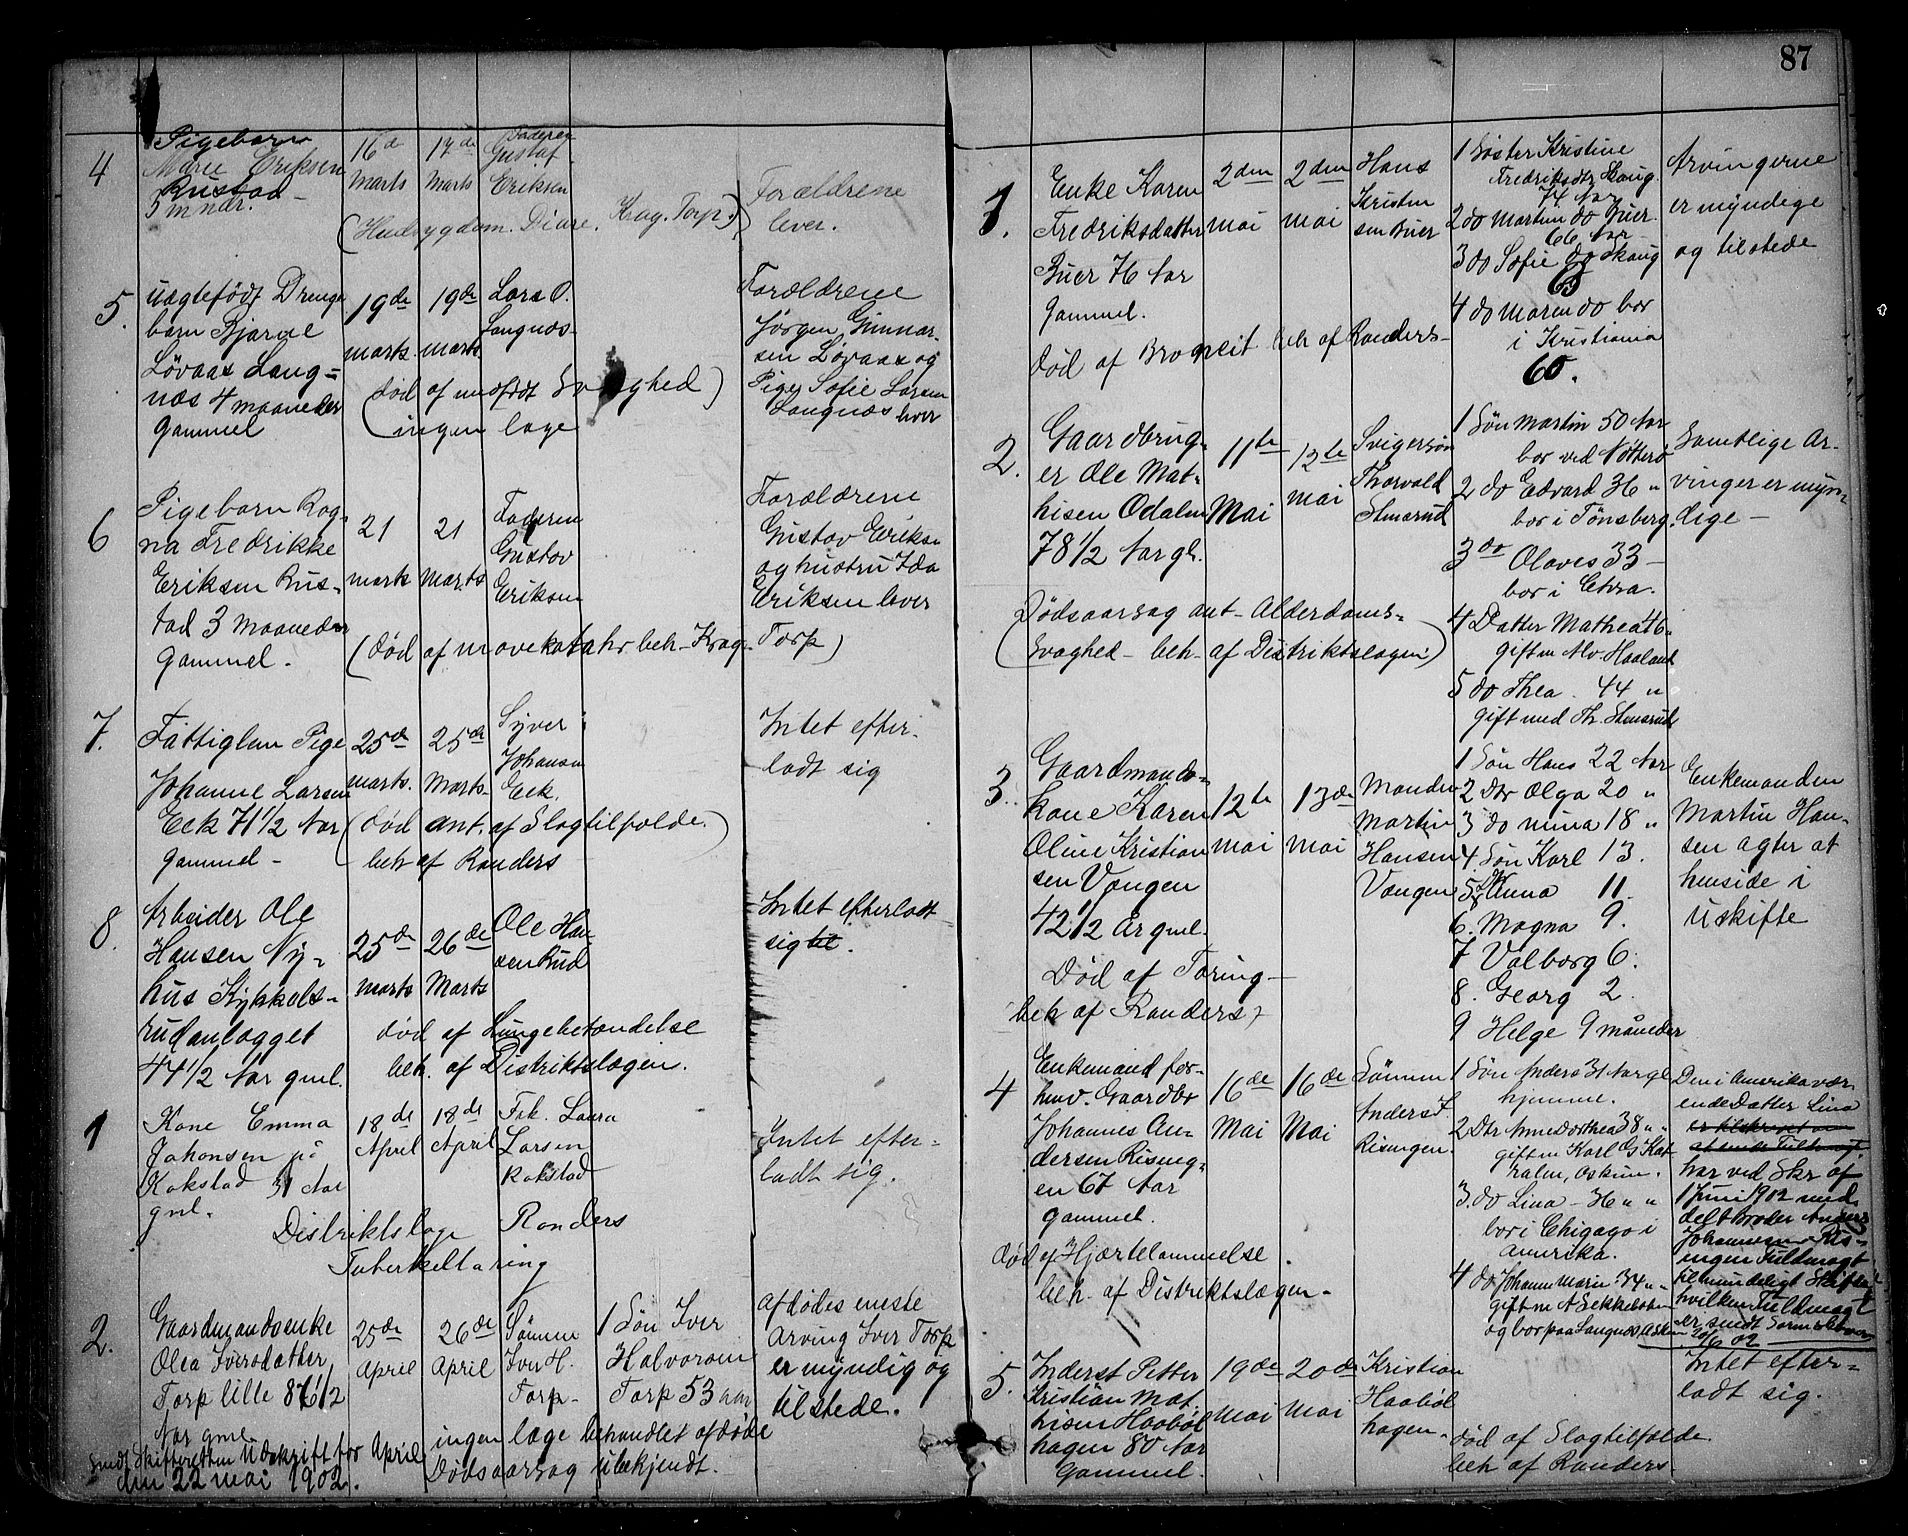 87
4
Pigebarn
Marie Eriksen
Rustad
5 mndr.
16de
Marts
17de
Marts
Faderen
Gustaf
Eriksen
(Hudsygdom. Diare. Krag. Torp.)
Forældrene
lever.
5.
uægtefødt Drenge
barn Bjarne
Løvaas Lang=
næs 4 maaneder
Gammel
19de
marts.
19de
marts
Lars O.
Langnæs
(død af medfødt Svaghed)
ingen læge
Forældrene
Jørgen Gunnar-
sen Løvaas og
Pige Sofie Larsen
Langnæs lever
6
Pigebarn Rag-
na Fredrikke
Eriksen Rus-
tad 3 Maaneder
gammel.
21
marts
21
marts
Faderen
Gustav
Eriksen
(død af mavekatahr beh. Krag-Torp)
Forældrene
Gustav Eriksen
og hustru Ida
Eriksen lever
7.
Fattiglem Pige
Johanne Larsen
Eek 71 1/2 Aar
gammel -
25de
marts.
25de
Marts
Syver
Johansen
Eek.
(død ant. af Slagtilfælde.)
beh af Randers
Intet efter-
ladt sig
8.
Arbeider Ole
Hansen Ny-
hus Kykkels-
rudanlægget
44 1/2 Aar gml.
25de
marts
26de
Marts
Ole Han
sen Rud
død af Lungebetændelse
beh. af Distriktslægen.
Intet efterladt
sig
1
Kone Emma
Johansen på
Kokstad 31 Aar
gml.
18de
April
18de
April
Frk. Laura
Larsen
Kokstad
Distriktslæge Randers
Tuberkeltæring
Intet efter-
ladt sig.
2.
Gaardmandsenke
Olea Iversdatter
Torp lille 87 1/2
Aar gml.
25de
April
26de
April
Sønnen
Iver H.
Torp-
1 Søn Iver
Halvorsen
Torp 53 aar
Afdødes eneste
Arving Iver Torp
er myndig og
tilstede.
ingen læge behandlet afdøde
Dødsaarsag ubekjendt.
Sendt Skifteretten Udskrift for April
den 22 mai 1902.
1.
Enke Karen
Fredriksdatter
Buer 76 Aar
Gammel.
2den
mai
2den
mai
Hans
Kristen
sen Buer
død af beh af Randers-
1 Søster Kristine
Fredriksdtr Skaug.
74 Aar
2 do Martine do Buer.
66 Aar
3 do Sofie do Skaug
63
4 do Maren do bor
i Kristiania
60.
Arvingerne
er myndige
og tilstede
2.
Gaardbrug-
er Ole Mat-
hisen Odalen
78 1/2 Aar gl.
11te
Mai
12te
mai
Svigersøn
Thorvald
Stmsrud
(Dødsaarsag ant- Alderdoms-
Svaghed - beh- af Distriktslægen)
1 Søn Martin 50 Aar
bor ved Nøtterø
2 do Edvard 36 "
bor i Tønsberg.
3 do Olaves 33 -
bor i
4 Datter Mathea 46-
gift m Alv. Haaland
5 do Thea. 44 "
gift med Th. Stmsrud
Samtlige Ar-
vinger er myn-
dige -
3.
Gaardmands-
kone Karen
Oline Kristian
sen Vangen
42 1/2 År gml.
12te
mai
13de
mai
Manden
Martin
Hansen
Vangen
Død af Tæring-
beh af Randers
1 Søn Hans 22 Aar
2 Dtr Olga 20 "
3 do Mina 18 "
4 Søn Karl 13.
5 Dtr Anna 11.
6. Magna 9.
7 Valborg 6.
8. Georg 2.
9 Helge 9 måneder
Enkemanden
Martin Han-
sen agter at
hensidde i
Uskifte
4
Enkemand for-
henv. Gaardbr
Johannes An-
dersen Rising-
en 67 Aar
gammel.
16de
Mai
16de
Mai
Sønnen
Anders J.
Risingen.
død af Hjærtelammelse.
beh. af Distriktslægen.
1 Søn Anders 31 Aar gl
hjemme.
2 Dtr Anne Dorthea 38 " "
gift m Karl Os Kat
ralen, Askim.
3. do Lina - 36 " "
bor i Chigago i
Amerika.
4 do Johanne Marie 34 " -
gift m A Sekkelsten
og bor paa Langnæs, Askim
Den i Amerika vær
ende Datter Lina
er tilskrevet om
at sende Fuldmagt
har ved Skr af
1 Juni 1902 med
delt Broder Anders
Johannesen Ris-
ingen Fuldmagt
til mindeligt Skifte
hvilken Fuldmagt
er sendt Sorenskriveren
20/6 02
5.
Inderst Petter
Kristian Mat
hisen Haabøl
hagen 80 Aar
Gammel.
19de
mai
20de
mai
Kristian
Haabøl
hagen.
død af Slagtilfælde
beh af Randers
Intet efter-
ladt sig.